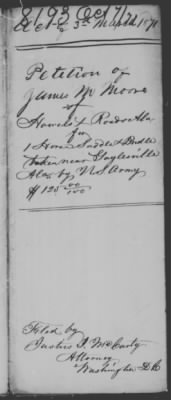 Act of 3rd March 1871
Petition of
James M Moore
of
Howels X Roads Ala
for
1 Horse Saddle & Bridle
taken near Gaylesville
Ala by U S Army
$ 125 00/100
Filed by
Justus I. McCarty
Attorney
Washington D.C